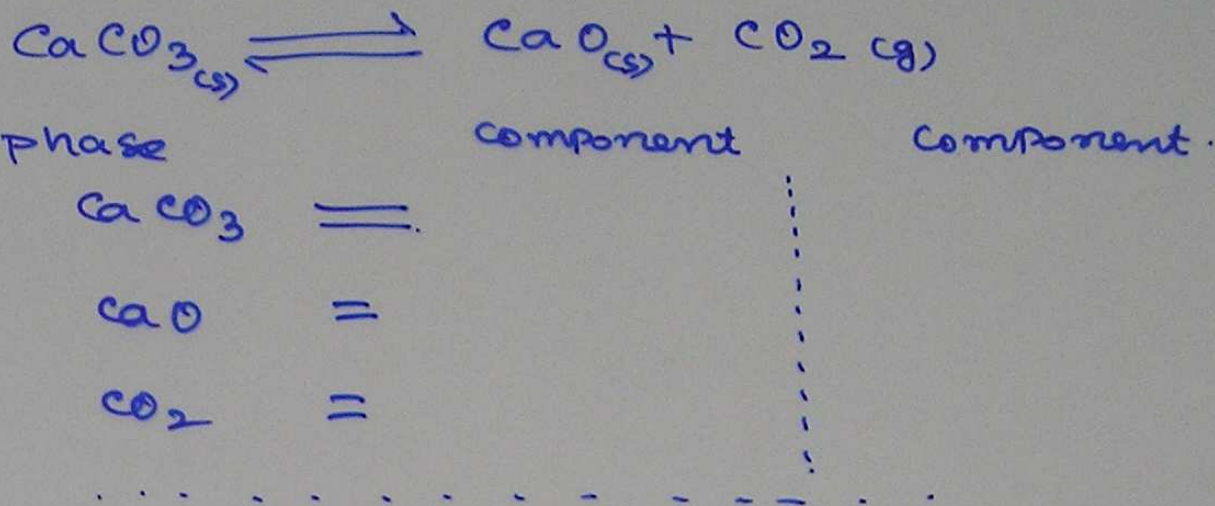 CaCO3(s) ⇌ CaO(s) + CO2 (g)
phase component component.
CaCO3 =
CaO =
CO2 =